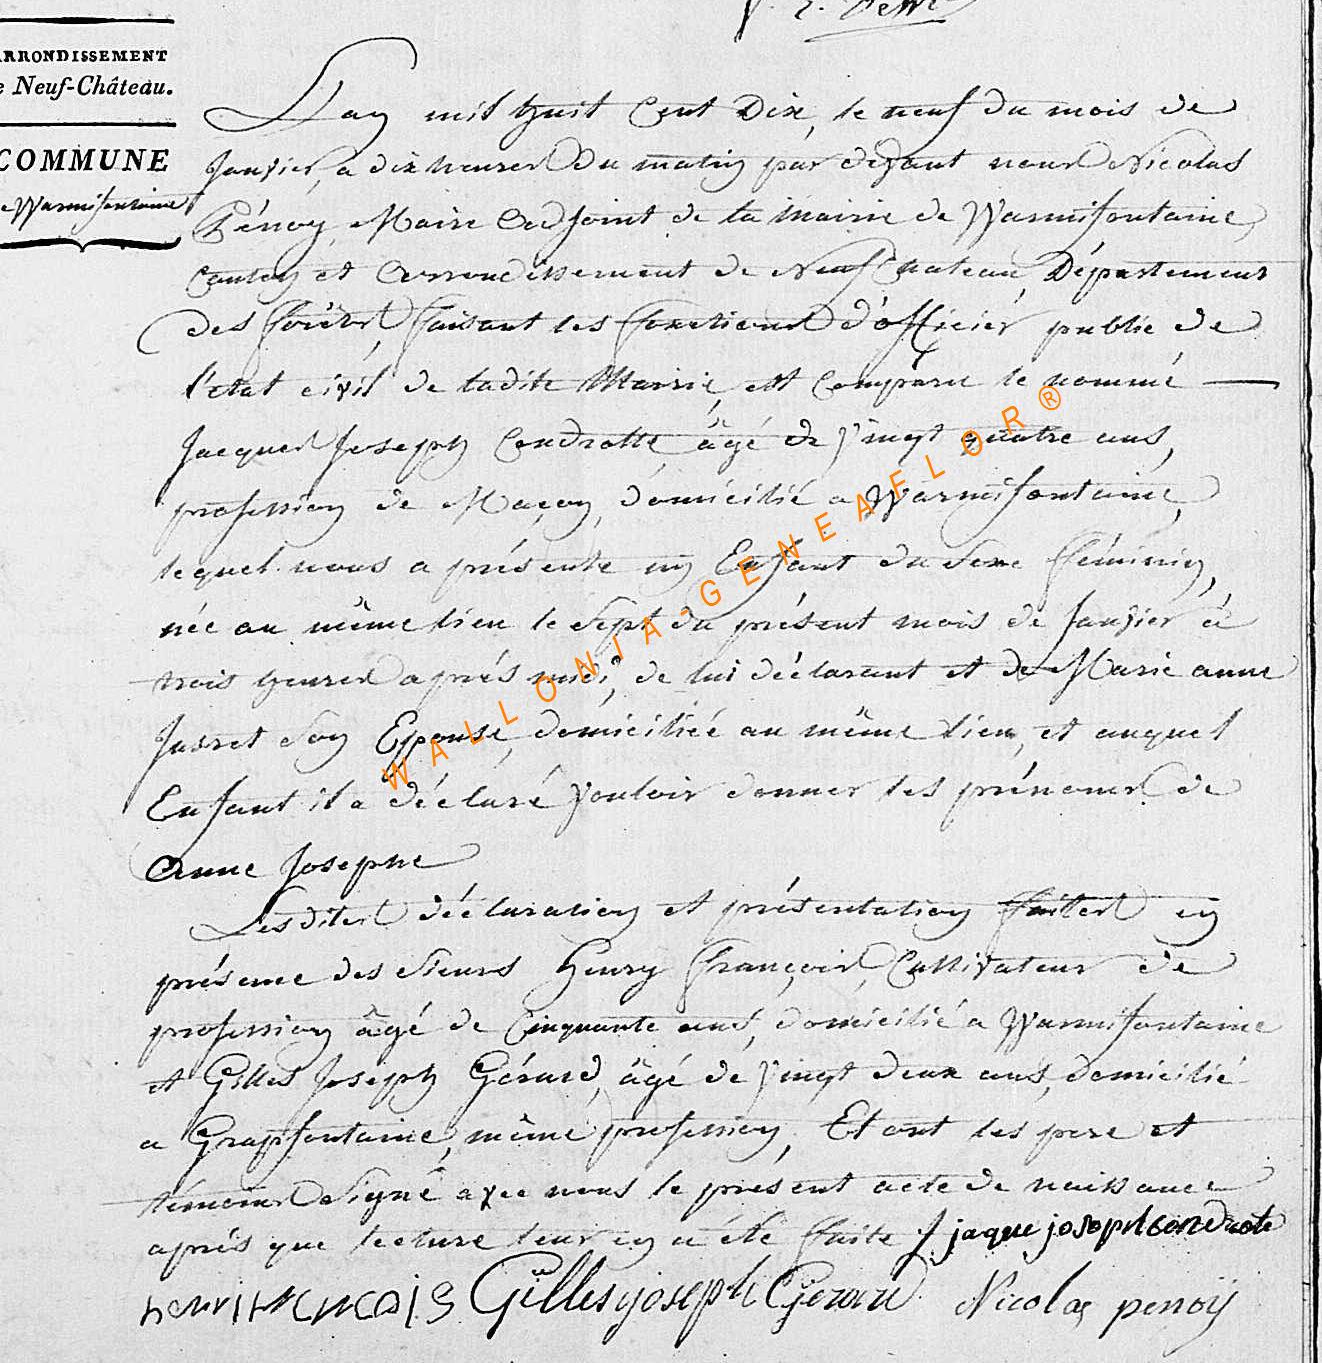 ARRONDISSEMENT
e Neuf-Château.
COMMUNE
e Warmifontaine
L'an mil huit Cent Dix, le neuf du mois de
Janvier, a dix heures du matin par devant nous Nicolas
Pénoy, Maire Adjoint de la Mairie de Warmifontaine,
Canton et Arrondissement de Neufchateau, Département
des forêts, faisant les fonctions d'officier public de
l'etat civil de ladite Mairie, est Comparu le nommé
Jacques Joseph Condrotte, âgé de vingt quatre ans,
profession de Maçon, domicilié a Warmifontaine,
lequel nous a présenté un Enfant du Sexe féminin,
née au même lieu le Sept du présent mois de Janvier à
trois heures après midi, de lui déclarant et de Marie anne
Jusret Son Epouse, domiciliée au même lieu, et auquel
Enfant il a déclaré vouloir donner les prénoms de
Anne Josephe
Lesdites déclaration et présentation faites en
présence des Sieurs Henry françois, Cultivateur de
profession âgé de Cinquante ans, domicilié a Warmifontaine
et Gilles Joseph Gérard, âgé de vingt deux ans, domicilié
a Grapfontaine, même profession, Et ont les pere et
témoins Signé avec nous le présent acte de naissance
après que lecture leur en a été faite jaque joseph condrote
henri francois Gilles joseph Gerard Nicolas penoÿ
WALLONIA-GENEAFLOR®